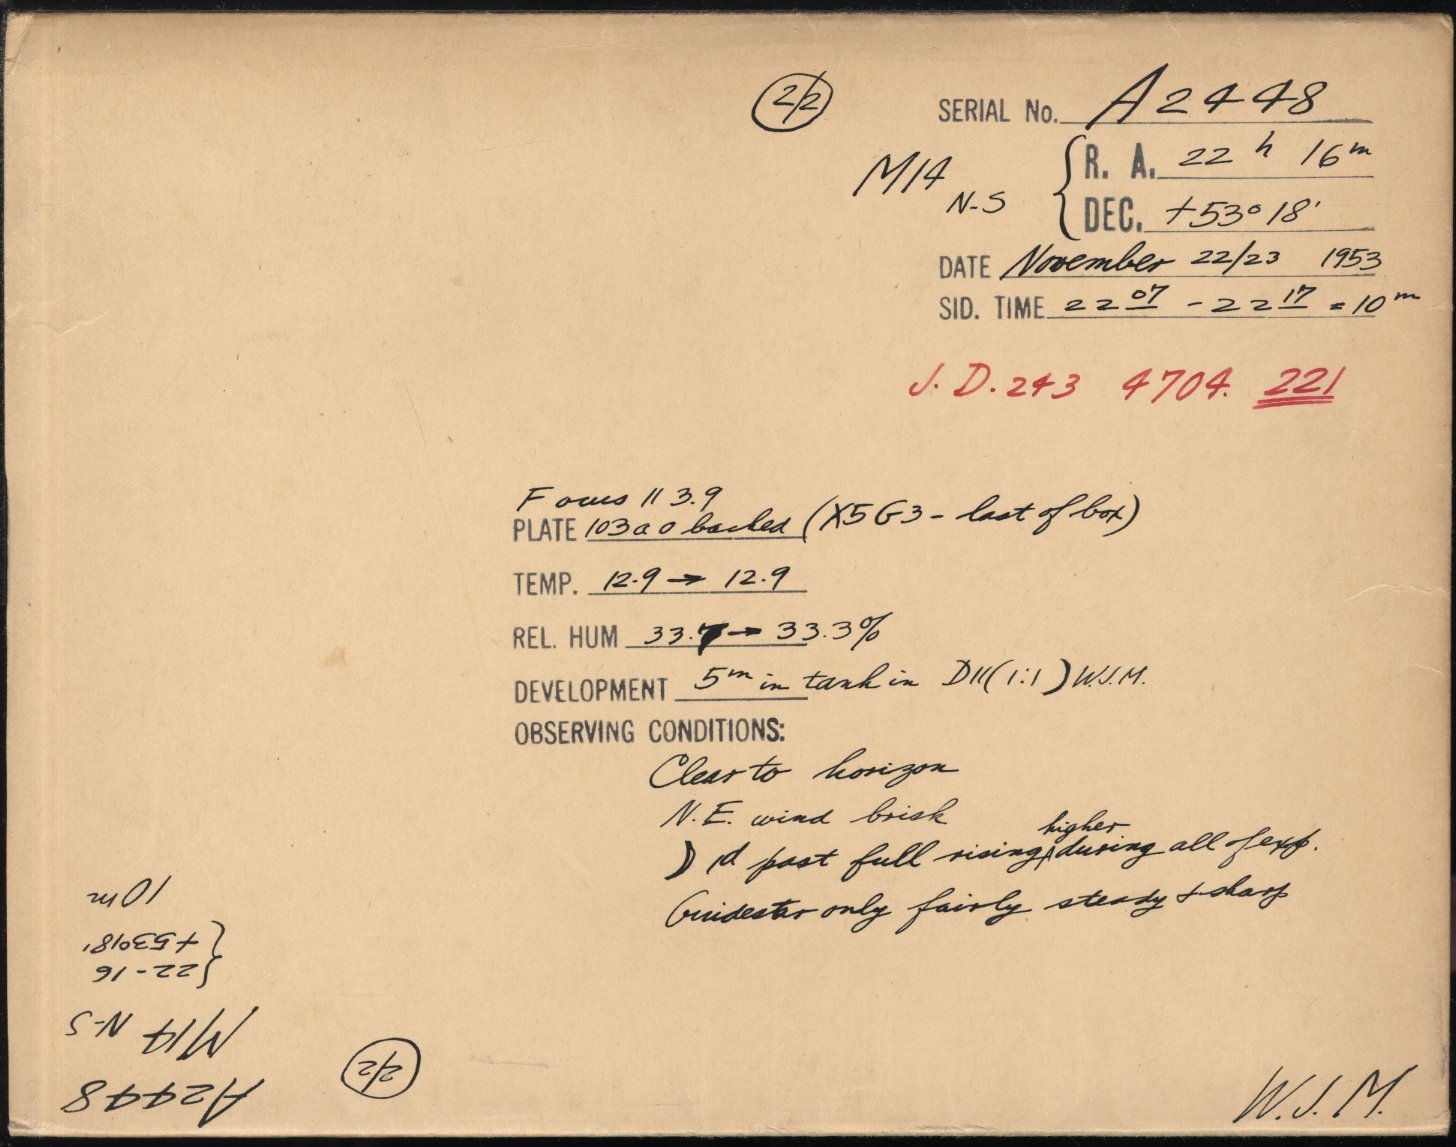 2/2
SERIAL No. A2448
M14 N-S
R. A. 22 h 16 m
DEC. +53° 18'
DATE November 22/23 1953
SID. TIME 22 07 - 22 17 = 10 m
J. D. 243 4704. 221
Focus 113.9
PLATE 103a O backed (X5G3 - last of box)
TEMP. 12.9 → 12.9
REL. HUM 33. → 33.3%
DEVELOPMENT 5m in tank in D11 (1:1) W.J.M.
OBSERVING CONDITIONS:
Clear to horizon
N.E. wind brisk
☽ 1d past full rising higher during all of exp.
Guidestar only fairly steady & sharp
W.J.M.
A2448
2/2
M14 N-S
22-16
+53°18'
10m